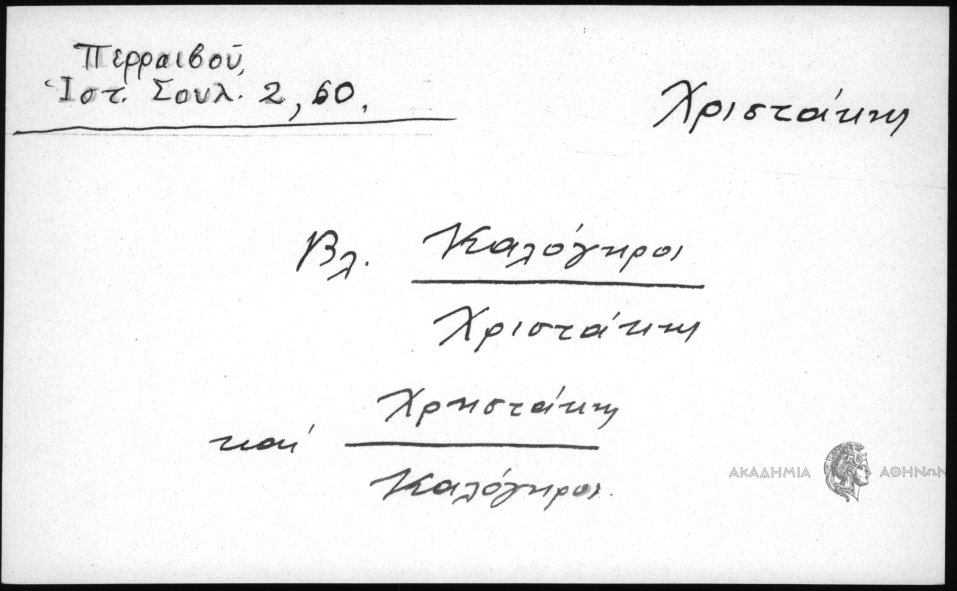 Περραιβοῦ,
Ἱστ. Σουλ. 2, 60.
Χριστάκης
Βλ. Καλόγηροι
Χριστάκης
καί Χρηστάκης
Καλόγηροι.
ΑΚΑΔΗΜΙΑ ΑΘΗΝΩΝ